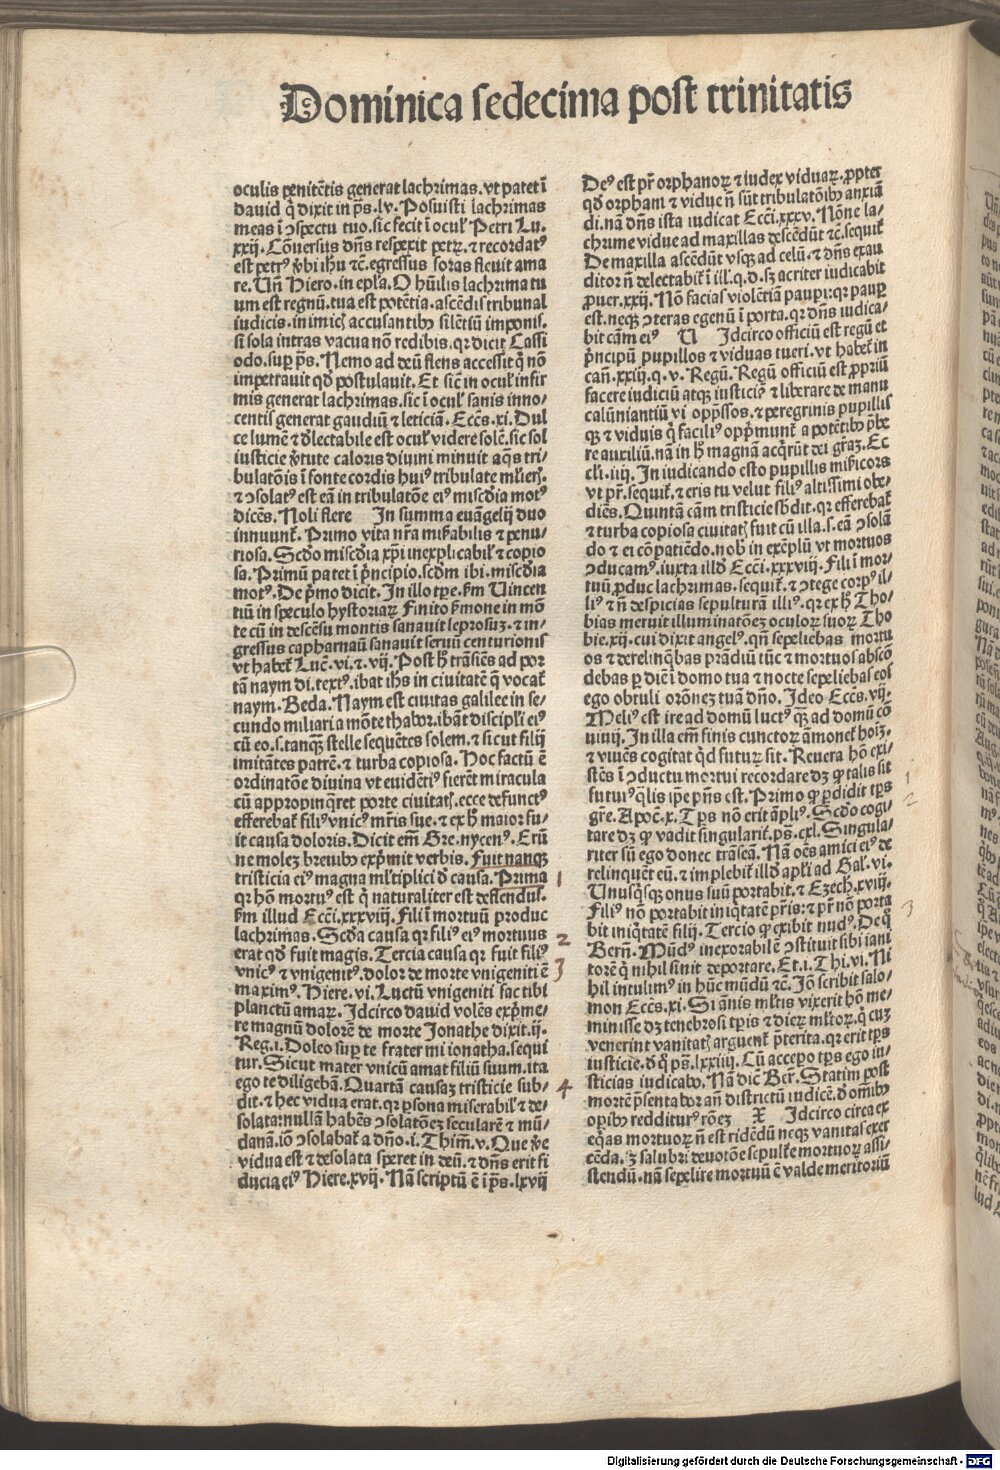 Dominica sedecima post trinitatis
oculis penitẽtis generat lachrimas. vt patet ĩ
dauid q̃ dixit in p̃s. lv. Posuisti lachrimas
meas ĩ ɔspectu tuo. sic fecit ĩ ocul' Petri Lu.
xxij. Cõuersus dñs respexit petrꝫ. ⁊ recordatꝰ
est petrꝰ ṽbi ihu ⁊c̃. egressus foras fleuit ama
re. Uñ Hiero. in epl'a. O hũilis lachrima tu
um est regnũ. tua est potẽtia. ascẽdis tribunal
iudicis. inimicꝭ accusantibꝰ silẽtiũ imponis.
si sola intras vacua nõ redibis. qꝛ dicit Cassi
odo. suꝑ p̃s. Nemo ad deũ flens accessit q̃ nõ
impetrauit qď postulauit. Et sic̃ in ocul' infir
mis generat lachrimas. sic ĩ ocul' sanis inno⸗
centis generat gaudiũ ⁊ leticiã. Ecc̃s. xi. Dul
ce lumẽ ⁊ d̃lectabile est ocul' videre solẽ. sic sol
iusticie ṽtute caloris diuini minuit aq̃s tri⸗
bulatõis ĩ fonte cordis huiꝰ tribulate ml'ieꝝ.
⁊ ɔsolatꝰ est eã in tribulatõe eiꝰ misc̃dia motꝰ
dicẽs. Noli flere In summa euãgelij duo
innuunt̃. Primo vita nr̃a mirabilis ⁊ penu⸗
riosa. Scd̃o misc̃dia xp̃i inexplicabil' ⁊ copio
sa. Primũ patet ĩ p̃ncipio. scd̃m ibi. misc̃dia
motꝰ. De p̃mo dicit. In illo tꝑe. s̃m Uincen
tiũ in speculo hystoriaꝝ Finito s̃mone in mõ
te cũ in descẽsu montis sanauit leprosuꝫ. ⁊ in⸗
gressus capharnaũ sanauit seruũ centurionis
vt habet̃ Luc̃. vi. ⁊ vij. Post h̃ trãsiẽs ad por
tã naym di. textꝰ. ibat ihs in ciuitatẽ q̃ vocat̃
naym. Beda. Naym est ciuitas galilee in se⸗
cundo miliaria mõte thabor. ibãt discipl'i eiꝰ
cũ eo. s. tanqꝫ stelle sequẽtes solem. ⁊ sicut filij
imitãtes patrẽ. ⁊ turba copiosa. Hoc factũ ẽ
ordinatõe diuina vt euidẽtiꝰ fierẽt miracula
cũ appropinq̃ret porte ciuitatꝭ. ecce defunctꝰ
efferebat̃ filiꝰ vnicꝰ mr̃is sue. ⁊ ex h̃ maior fu⸗
it causa doloris. Dicit em̃ Gre. nycenꝰ. Erũ
ne moleꝫ breuibꝰ exp̃mit verbis. Fuit nanqꝫ
tristicia eiꝰ magna ml'tiplici d̃ causa. Prima 1
qꝛ hõ mortuꝰ est q̃ naturaliter est deflendus̃.
s̃m illud Ecc̃i. xxxviij. Fili ĩ mortuũ produc
lachrimas. Scd̃a causa qꝛ filiꝰ eiꝰ mortuus 2
erat qď fuit magis. Tercia causa qꝛ fuit filiꝰ
vnicꝰ ⁊ vnigenitꝰ. dolor de morte vnigeniti ẽ 3
maximꝰ. Hiere. vi. Luctũ vnigeniti fac tibi
planctũ amaꝝ. Idcirco dauid volẽs exp̃me⸗
re magnũ dolorẽ de morte Jonathe dixit. ij.
Reg. i. Doleo suꝑ te frater mi ionatha. sequi
tur. Sicut mater vnicũ amat filiũ suum. ita
ego te diligebã. Quartã causaꝫ tristicie sub⸗ 4
dit. ⁊ hec vidua erat. qꝛ ꝑsona miserabil' ⁊ de⸗
solata: nullã habẽs ɔsolatõeꝫ secularẽ ⁊ mũ⸗
danã. iõ ɔsolabat̃ a dño. i. Thim̃. v. Que ṽe
vidua est ⁊ desolata speret in deũ. ⁊ dñs erit fi
ducia eiꝰ Hiere. xvij. Nã scriptũ ẽ ĩ p̃s. lxvij
Deꝰ est pr̃ orphanoꝝ ⁊ iudex viduaꝝ. ꝓpter
qď orphani ⁊ vidue ñ sũt tribulatõibꝰ anxiã
di. nã dñs ista iudicat Ecc̃i. xxxv. Nõne la⸗
chrime vidue ad maxillas descẽdũt ⁊c̃. sequit̃
De maxilla ascẽdũt vsqꝫ ad celũ. ⁊ dñs exau
ditor ñ delectabit̃ ĩ ill. q. d. sꝫ acriter iudicabit
ꝓuer. xxij. Nõ facias violẽtiã pauꝑi: qꝛ pauꝑ
est. neqꝫ ɔteras egenũ ĩ porta. qꝛ dñs iudica⸗
bit cãm eiꝰ U Idcirco officiũ est regũ et
p̃ncipũ pupillos ⁊ viduas tueri. vt habet̃ in
cañ. xxiij. q. v. Regũ. Regũ officiũ est ꝓpriũ
facere iudiciũ atqꝫ iusticiẽ ⁊ liberare de manu
calũniantiũ vi opp̃ssos. ⁊ peregrinis pupillis
qꝫ ⁊ viduis q̃ faciliꝰ opp̃munt̃ a potẽtibꝰ p̃be
re auxiliũ. nã in h̃ magnã acq̃rũt dei gr̃aꝫ. Ec
cl'i. iiij. In iudicando esto pupillis mis̃icors
vt pr̃. sequit̃. ⁊ eris tu velut filiꝰ altissimi obe⸗
diẽs. Quintã cãm tristicie sb̃dit. qꝛ efferebat̃
⁊ turba copiosa ciuitatꝭ fuit cũ illa. s. eã ɔsolã
do ⁊ ei cõpatiẽdo. nob̃ in exẽplũ vt mortuos
ɔducamꝰ. iuxta illd̃ Ecc̃i. xxxviij. Fili ĩ mor⸗
tuũ ꝓduc lachrimas. sequit̃. ⁊ ɔtege corpꝰ il⸗
liꝰ ⁊ ñ despicias sepulturã illiꝰ. qꝛ ex h̃ Tho⸗
bias meruit illuminatõeꝫ oculoꝝ suoꝝ Tho
bie. xij. cui dixit angelꝰ. qñ sepeliebas mortu
os ⁊ derelinq̃bas prãdiũ tũc ⁊ mortuos abscõ
debas ꝑ diẽ ĩ domo tua ⁊ nocte sepeliebas eos
ego obtuli orõneꝫ tuã dño. Ideo Ecc̃s. vij.
Meliꝰ est ire ad domũ luctꝰ qꝫ ad domũ cõ
uiuij. In illa em̃ finis cunctoꝝ ãmonet̃ hoiꝫ.
⁊ viuẽs cogitat qď futuꝝ sit. Reuera hõ exi⸗
stẽs ĩ ɔductu mortui recordare dꝫ ꝙ talis sit
futuꝰ q̃lis ip̃e p̃ñs est. Primo ꝙ ꝑdidit tp̃s 1
gre. Apoc̃. x. Tp̃s nõ erit ãpliꝰ. Scd̃o cogi⸗ 2
tare dꝫ ꝙ vadit singularit̃. ps. cxl. Singula⸗
riter sũ ego donec trãseã. Nã oẽs amici eiꝰ de
relinquẽt eũ. ⁊ implebit̃ illd̃ apl'i ad Gal'. vi.
Unusq̃sqꝫ onus suũ portabit. ⁊ Ezech̃. xviij.
Filiꝰ nõ portabit iniq̃tatẽ pr̃is: ⁊ pr̃ nõ porta 3
bit iniq̃tatẽ filij. Tercio ꝙ exibit nudꝰ. De q̃
Berñ. Mũdꝰ inexorabilẽ ɔstituit sibi iani
torẽ q̃ nihil sinit deportare. Et. i. Thi. vi. Ni
hil intulimꝰ in hũc mũdũ ⁊c̃. Iõ scribit salo⸗
mon Ecc̃s. xi. Si ãnis ml'tis vixerit hõ me⸗
minisse dꝫ tenebrosi tꝑis ⁊ dieꝝ ml'toꝝ. q̃ cuꝫ
venerint vanitatꝭ arguent̃ p̃terita. qꝛ erit tp̃s
iusticie. d̃ q̃ p̃s. lxxiiij. Cũ accepo tp̃s ego iu⸗
sticias iudicabo. Nã dic̃ Ber̃. Statim post
mortẽ p̃sentabor añ districtũ iudicẽ. d̃ om̃ibꝰ
oꝑibꝰ redditurꝰ rõeꝫ X Idcirco circa ex
eq̃as mortuoꝝ ñ est ridẽdũ neqꝫ vanitas exer
cẽda. ꝫ salubri deuotõe sepult̃e mortuoꝝ assi⸗
stendũ. nã sepelire mortuũ ẽ valde meritoriũ
Digitalisierung gefördert durch die Deutsche Forschungsgemeinschaft - DFG